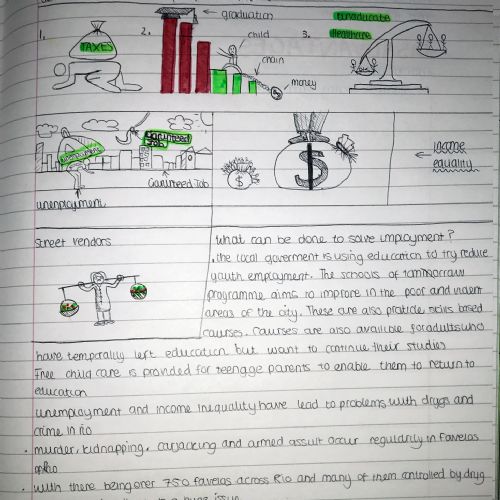 1.
TAXES
2.
graduation
child
chain
money
3.
Healthcare
Unemployment
Garunteed Job
unenployment
$
$
income
equality
street vendors
What can be done to solve imployment?
. the local goverment is using education to try reduce
youth employment. The schools of tommorrow
programme aims to improre in the poor and
areas of the city. These are also skills based
courses. Courses are also availible for adults who
have temporally left education but want to continue their studies
Free child care is provided for teenage parents to enable them to return to
education
unemployment and income inequality have lead to problems with drugs and
crime in rio
. murder, kidnapping, carjacking and armed assult occur regularly in Favelas
. with there being over 750 favelas across Rio and many of them controlled by drug